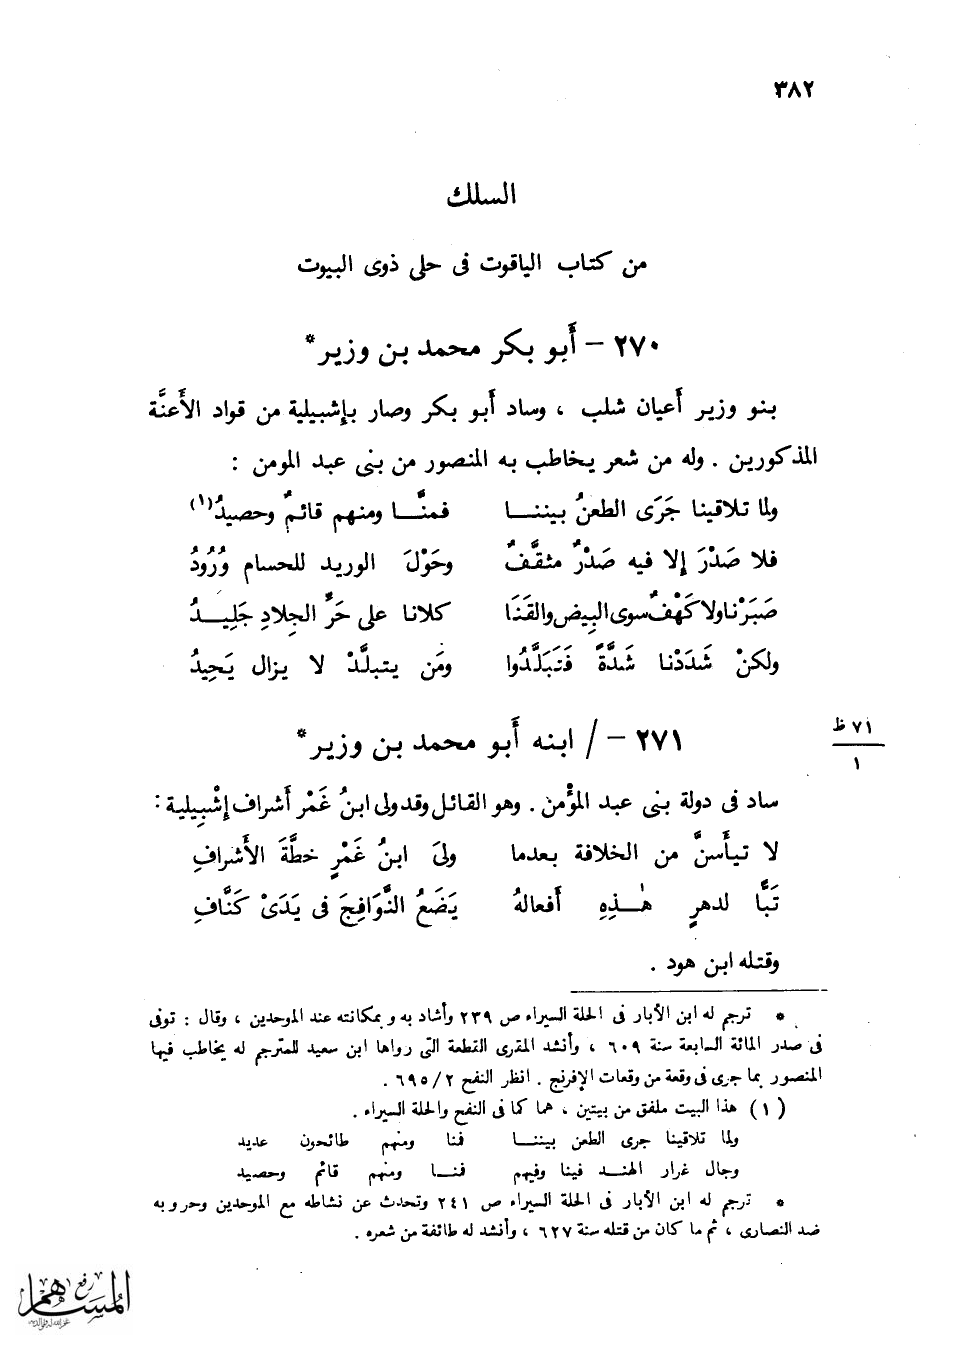 ٣٨٢
السلك
من كتاب الياقوت فى حلى ذوى البيوت
٢٧٠ – أَبو بكر محمد بن وزير*
بنو وزير أَعيان شلب ، وساد أَبو بكر وصار بإشبيلية من قواد الأَعنَّة
المذكورين . وله من شعر يخاطب به المنصور من بنى عبد المومن :
ولما تلاقينا جَرَى الطعنُ بيننـــا فمنَّـــا ومنهم قائمٌ وحصيدُ(١)
فلا صَدْرَ إلا فيه صَدْرٌ مثقَّفٌ وحَوْلَ الوريد للحسام وُرُودُ
صَبَرْنا ولا كَهْفٌ سوى البِيض والقَنَا كلانا على حَرِّ الجِلادِ جَلِيــدُ
ولكنْ شَدَدْنا شَدَّةً فَتَبَلَّدُوا ومَن يتبلَّدْ لا يزال يَحِيدُ
٢٧١ – / ابنه أَبو محمد بن وزير*
٧١ ظ
١
ساد فى دولة بنى عبد المؤْمن . وهو القائل وقد ولى ابنُ غَمْر أَشراف إشْبِيلية :
لا تيأَسنَّ من الخلافة بعدما ولىَ ابنُ غَمْرٍ خطَّةَ الأَشرافِ
تَبًّا لدهرٍ هٰــذِهِ أَفعالهُ يَضَعُ النَّوَافِجَ فى يَدَىْ كَنَّافِ
وقتله ابن هود .
* ترجم له ابن الأبار فى الحلة السيراء ص ٢٣٩ وأشاد به وبمكانته عند الموحدين ، وقال : توفى
فى صدر المائة السابعة سنة ٦٠٩ ، وأنشد المقرى القطعة التى رواها ابن سعيد للمترجم له يخاطب فيها
المنصور بما جرى فى وقعة من وقعات الإفرنج . انظر النفح ٢/٦٩٥ .
(١) هذا البيت ملفق من بيتين ، هما كما فى النفح والحلة السيراء .
ولما تلاقينا جرى الطعن بيننــا فمنا ومنهم طائحون عديد
وجال غرار الهنــد فينا وفيهم فنــا ومنهم قائم وحصيد
* ترجم له ابن الأبار فى الحلة السيراء ص ٢٤١ وتحدث عن نشاطه مع الموحدين وحروبه
ضد النصارى ، ثم ما كان من قتله سنة ٦٢٧ ، وأنشد له طائفة من شعره .
رفع
المساهم